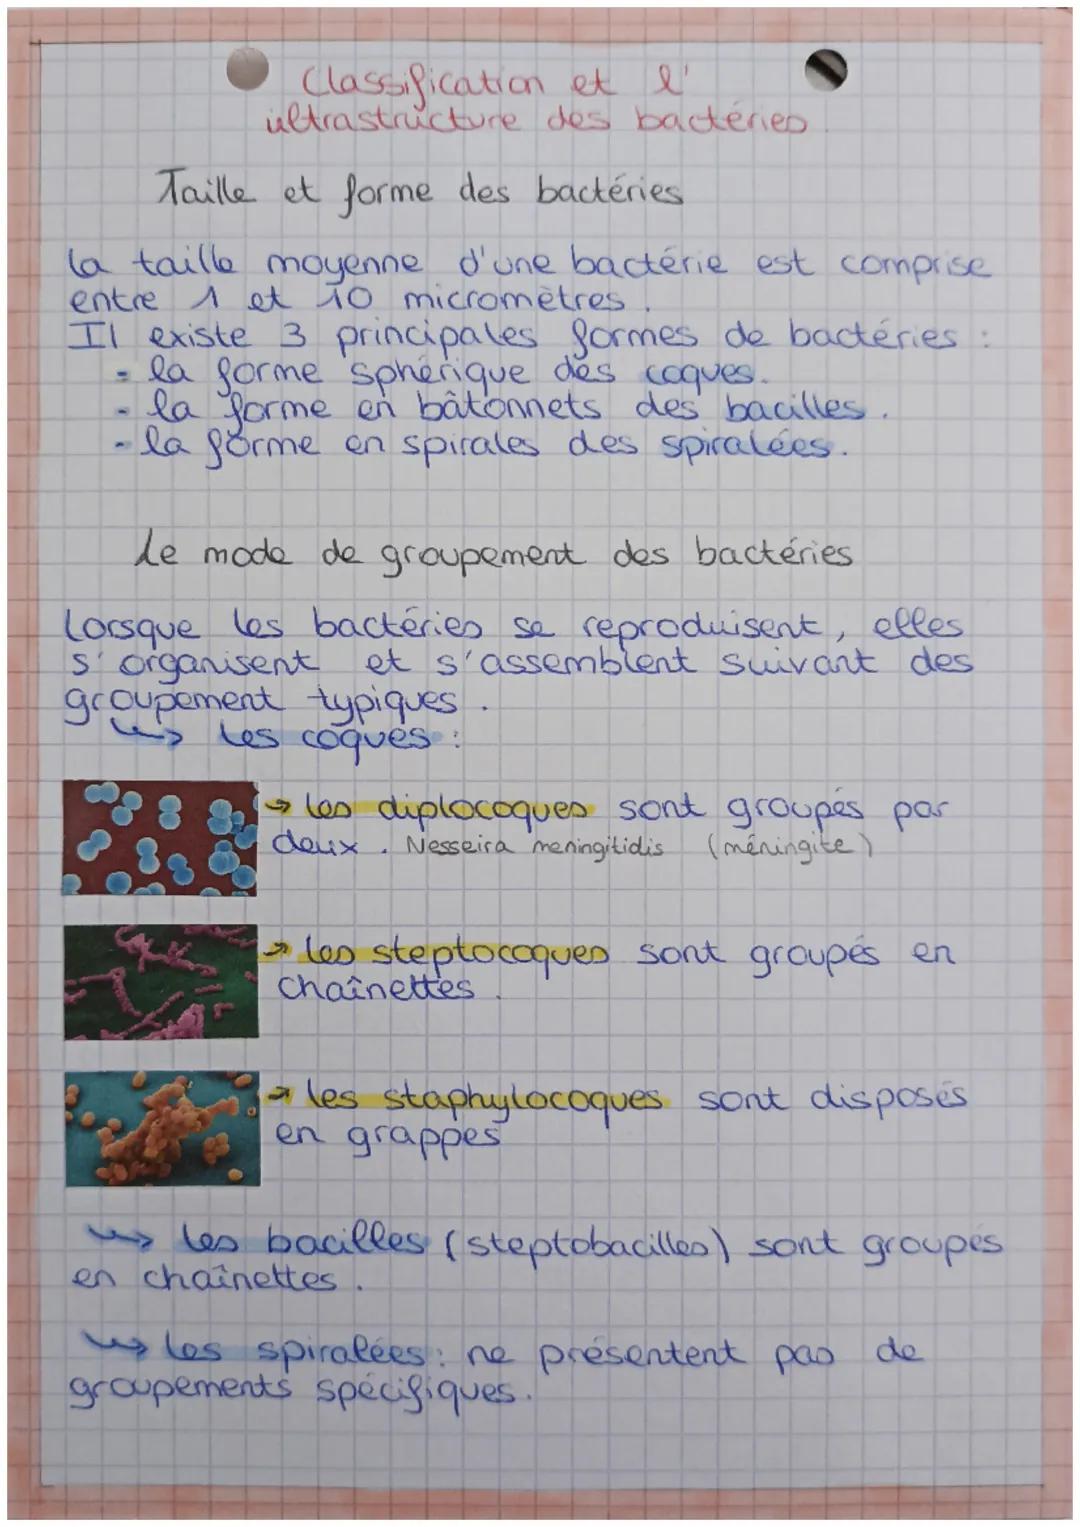 Classification et l'
ultrastructure des bactéries
Taille et forme des bactéries
la taille moyenne d'une bactérie est comprise
entre 1 et 10 micromètres.
Il existe 3 principales formes de bactéries :
- la forme sphérique des coques.
- la forme en bâtonnets des bacilles.
- la forme en spirales des spiralées.
Le mode de groupement des bactéries
lorsque les bactéries se reproduisent, elles
s'organisent et s'assemblent suivant des
groupement typiques.
↳ les coques :
→ les diplocoques sont groupés par
deux. Nesseira meningitidis (méningite)
→ les steptocoques sont groupés en
chaînettes.
→ les staphylocoques sont disposés
en grappes
↳ les bacilles (steptobacilles) sont groupés
en chaînettes.
↳ les spiralées: ne présentent pas de
groupements spécifiques.